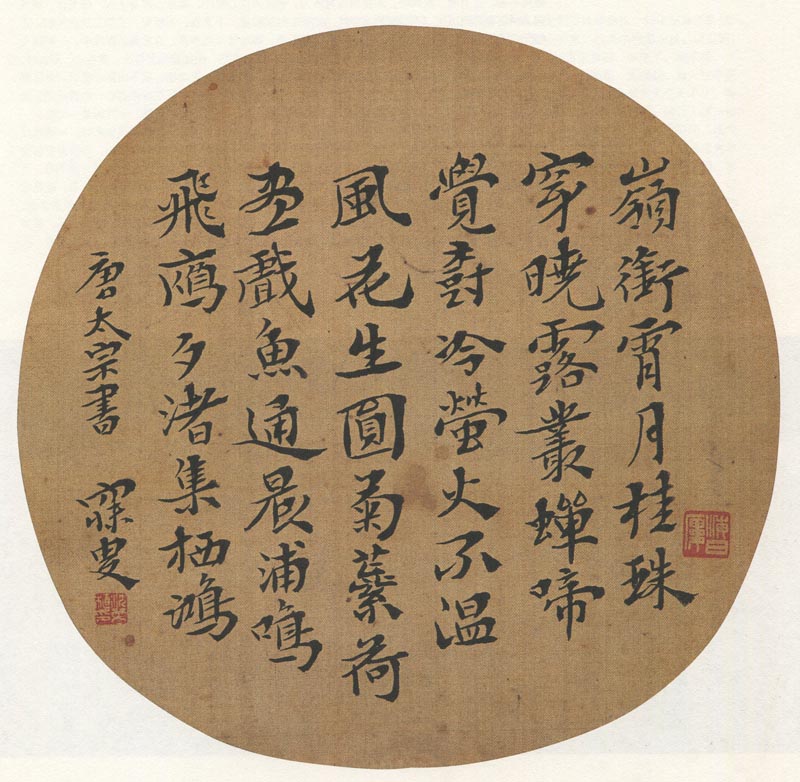 嶺銜霄月桂珠
穿曉露叢蟬啼
覺樹冷螢火不溫
風花生圓菊蘂荷
盡戲魚通晨浦鳴
飛鴈夕渚集栖鴻
唐太宗書 寐叟
海日廔